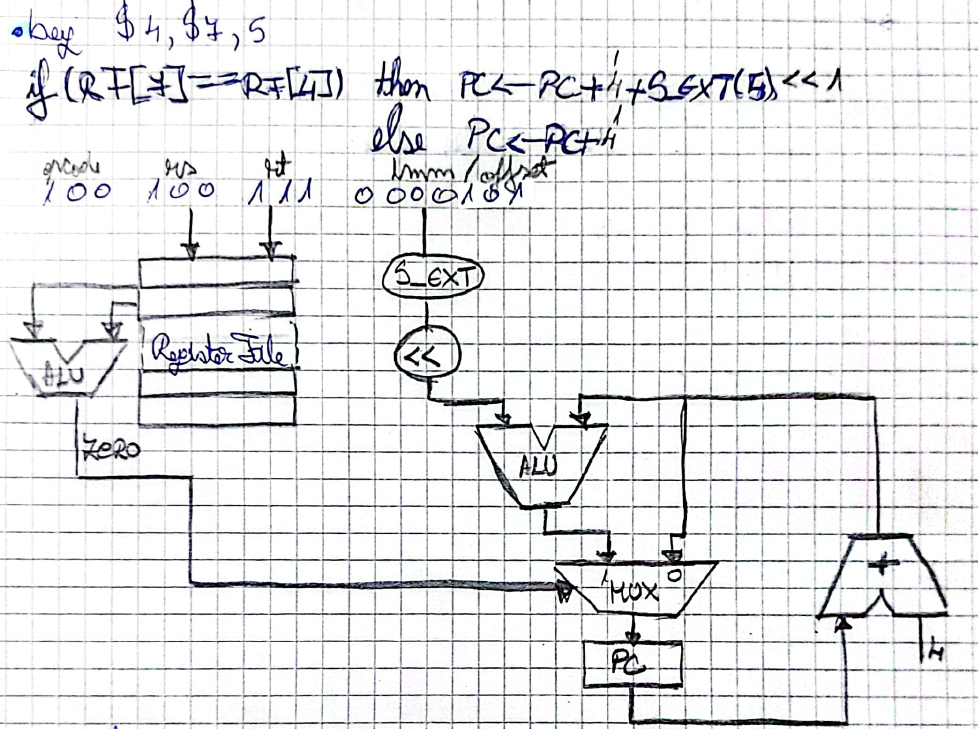 • beq $4, $7, 5
if (RF[7]==RF[4]) then PC←PC+4+S_EXT(5)<<1
else PC←PC+4
opcode rs rt Imm/offset
100 100 111 0000101
S_EXT
Register File
<<
ALU
ZERO
ALU
+
1 0
MUX
4
PC